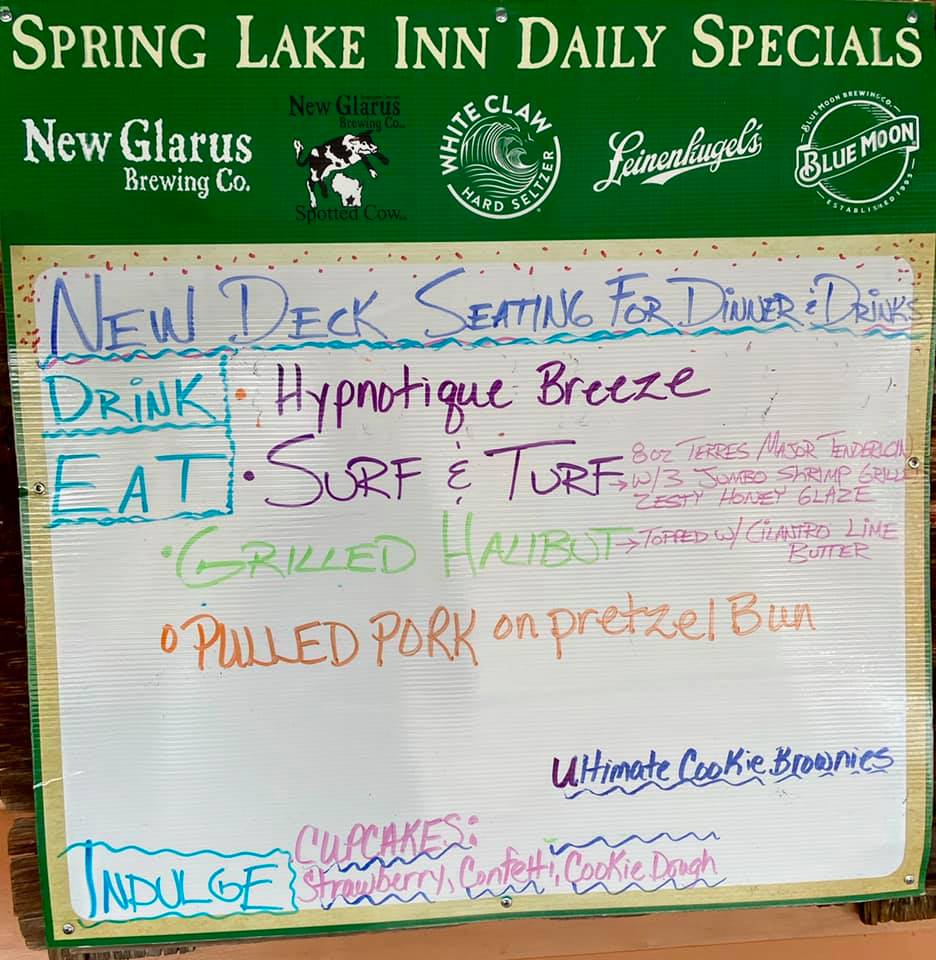 SPRING LAKE INN DAILY SPECIALS
New Glarus
Brewing Co.
New Glarus
Brewing Co.
Spotted Cow
WHITE CLAW
HARD SELTZER
Leinenkugel's
BLUE MOON BREWING CO.
BLUE MOON
ESTABLISHED 1995
NEW DECK SEATING FOR DINNER & DRINKS
DRINK • Hypnotique Breeze
EAT • SURF & TURF → 8oz TERRES MAJOR TENDERLOIN
W/3 JUMBO SHRIMP GRILLED
ZESTY HONEY GLAZE
• GRILLED HALIBUT → TOPPED W/ CILANTRO LIME
BUTTER
o PULLED PORK on pretzel Bun
Ultimate Cookie Brownies
INDULGE CUPCAKES:
Strawberry, Confetti, Cookie Dough